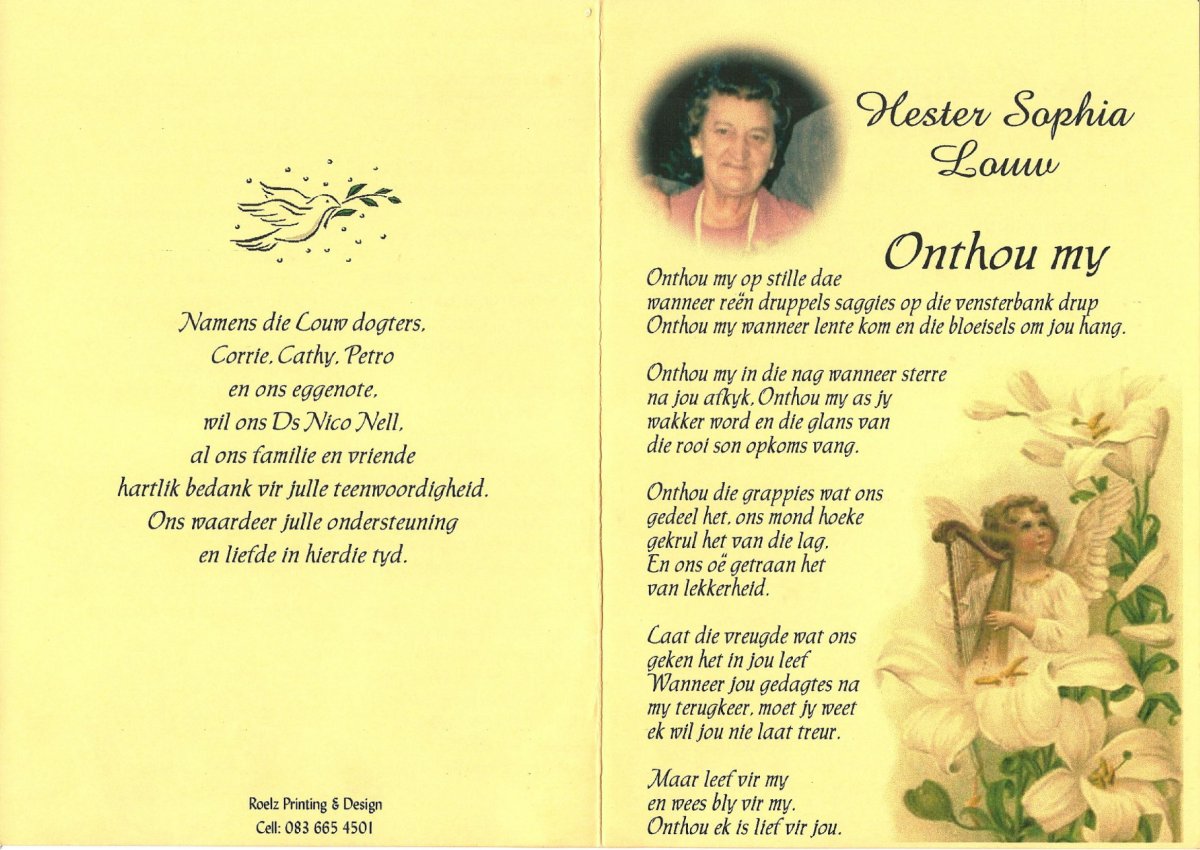 Namens die Louw dogters,
Corrie, Cathy, Petro
en ons eggenote,
wil ons Ds Nico Nell,
al ons familie en vriende
hartlik bedank vir julle teenwoordigheid.
Ons waardeer julle ondersteuning
en liefde in hierdie tyd.
Roelz Printing & Design
Cell: 083 665 4501
Hester Sophia
Louw
Onthou my
Onthou my op stille dae
wanneer reën druppels saggies op die vensterbank drup
Onthou my wanneer lente kom en die bloeisels om jou hang.
Onthou my in die nag wanneer sterre
na jou afkyk, Onthou my as jy
wakker word en die glans van
die rooi son opkoms vang.
Onthou die grappies wat ons
gedeel het, ons mond hoeke
gekrul het van die lag,
En ons oë getraan het
van lekkerheid.
Laat die vreugde wat ons
geken het in jou leef
Wanneer jou gedagtes na
my terugkeer, moet jy weet
ek wil jou nie laat treur.
Maar leef vir my
en wees bly vir my.
Onthou ek is lief vir jou.